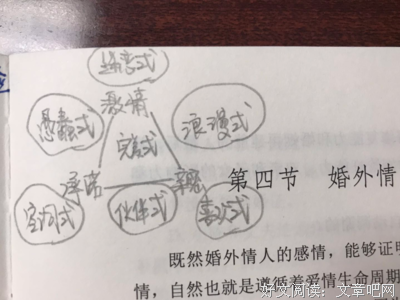 迷恋式
激情
愚蠢式
浪漫式
完美式
承诺
亲密
空洞式
伙伴式
喜欢式
第四节 婚外情
既然婚外情人的感情，能够证明
情，自然也就是遵循着爱情生命周期
好文阅读：文章吧网